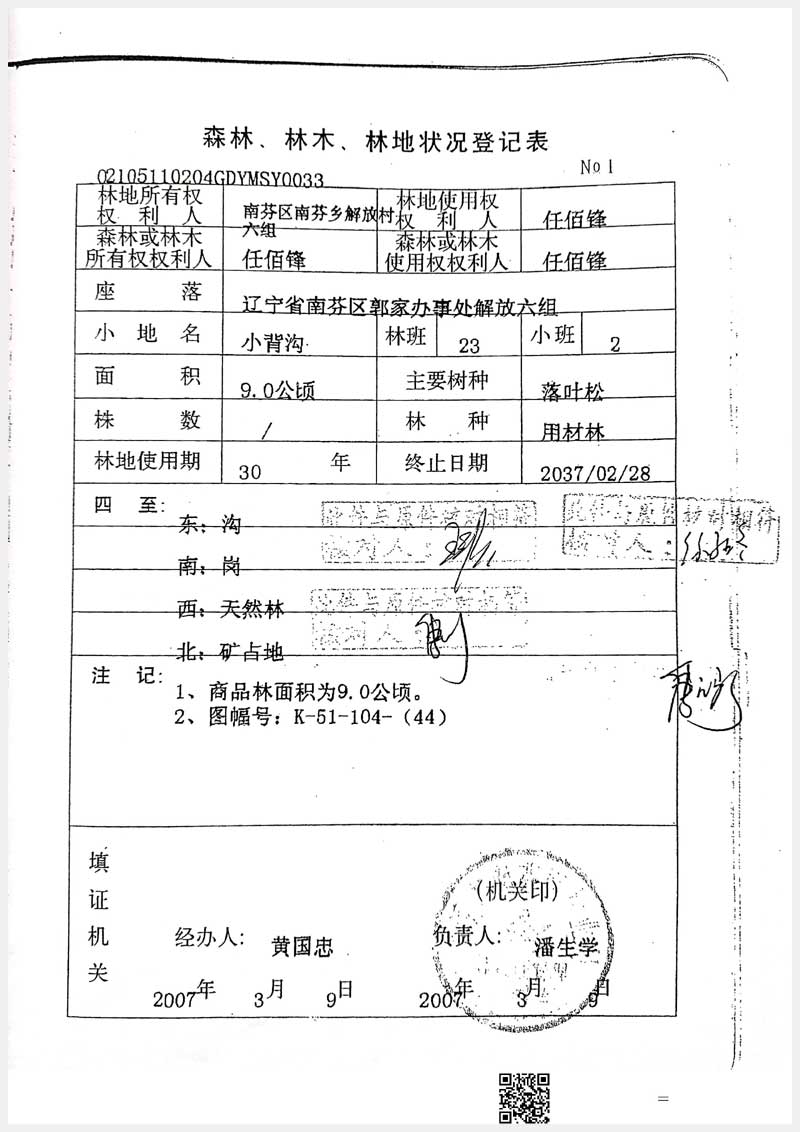 森林、林木、林地状况登记表
02105110204GDYMSY0033 No1
林地所有权权利人 南芬区南芬乡解放村六组 林地使用权权利人 任佰锋
森林或林木所有权权利人 任佰锋 森林或林木使用权权利人 任佰锋
座落 辽宁省南芬区郭家办事处解放六组
小地名 小背沟 林班 23 小班 2
面积 9.0公顷 主要树种 落叶松
株数 / 林种 用材林
林地使用期 30 年 终止日期 2037/02/28
四至:
东: 沟
南: 岗
西: 天然林
北: 矿占地
注记:
1、商品林面积为9.0公顷。
2、图幅号: K-51-104-(44)
填证机关
(机关印)
经办人: 黄国忠 负责人: 潘生学
2007年 3月 9日 2007年 3月 9日